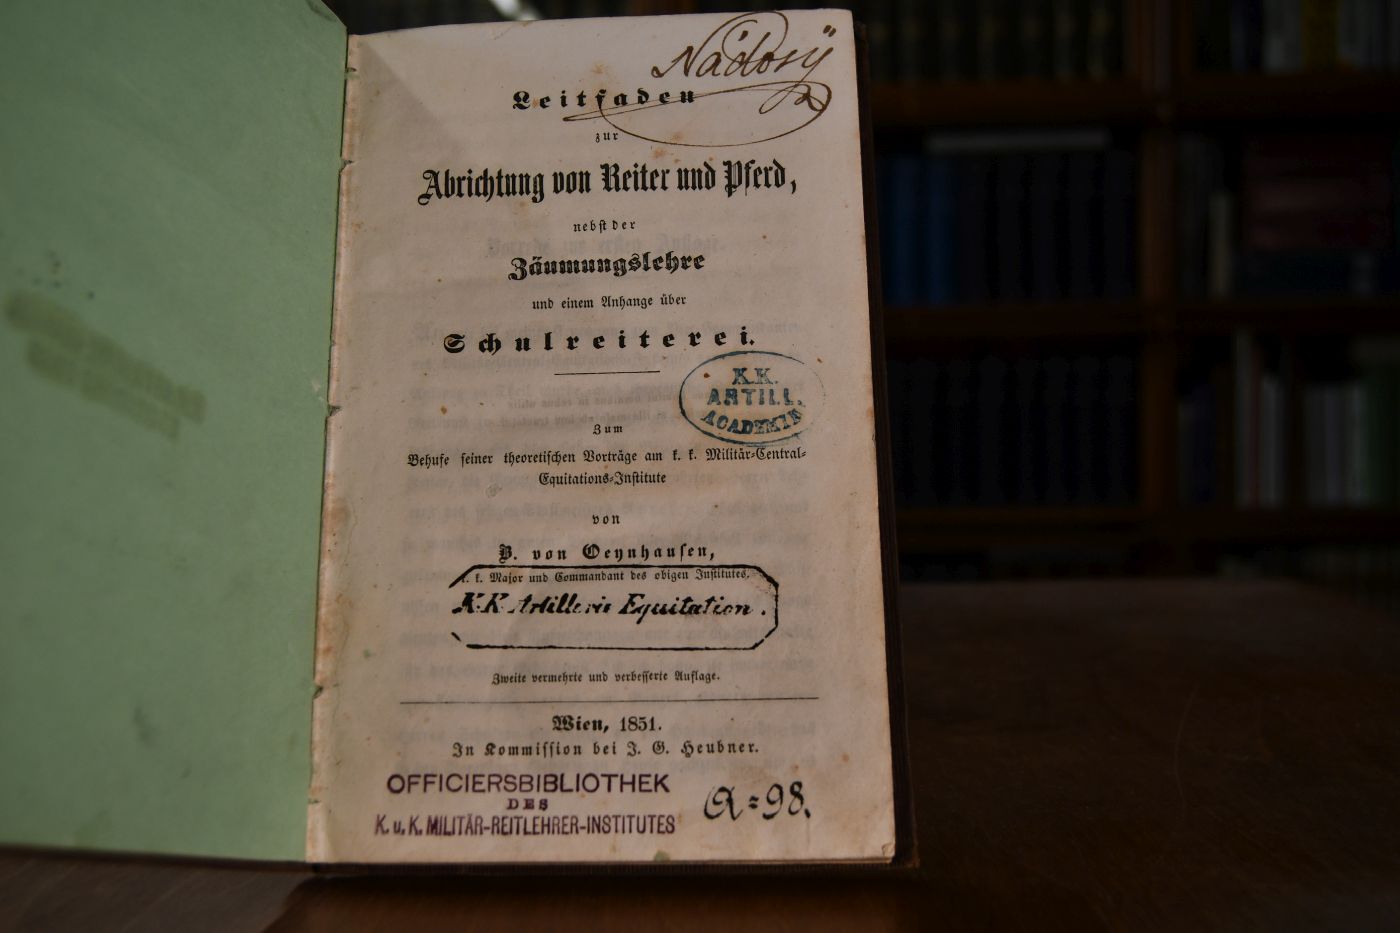 Nádosÿ
Leitfaden
zur
Abrichtung von Reiter und Pferd,
nebst der
Zäumungslehre
und einem Anhange über
Schulreiterei.
K.K.
ARTILL.
ACADEMIE
Zum
Behufe seiner theoretischen Vorträge am k. k. Militär-Central-
Equitations-Institute
von
B. von Oeynhausen,
k. k. Major und Commandant des obigen Institutes,
K.K. Artillerie Equitation.
Zweite vermehrte und verbesserte Auflage.
Wien, 1851.
In Kommission bei J. G. Heubner.
OFFICIERSBIBLIOTHEK
DES
K. u. K. MILITÄR-REITLEHRER-INSTITUTES
A=98.